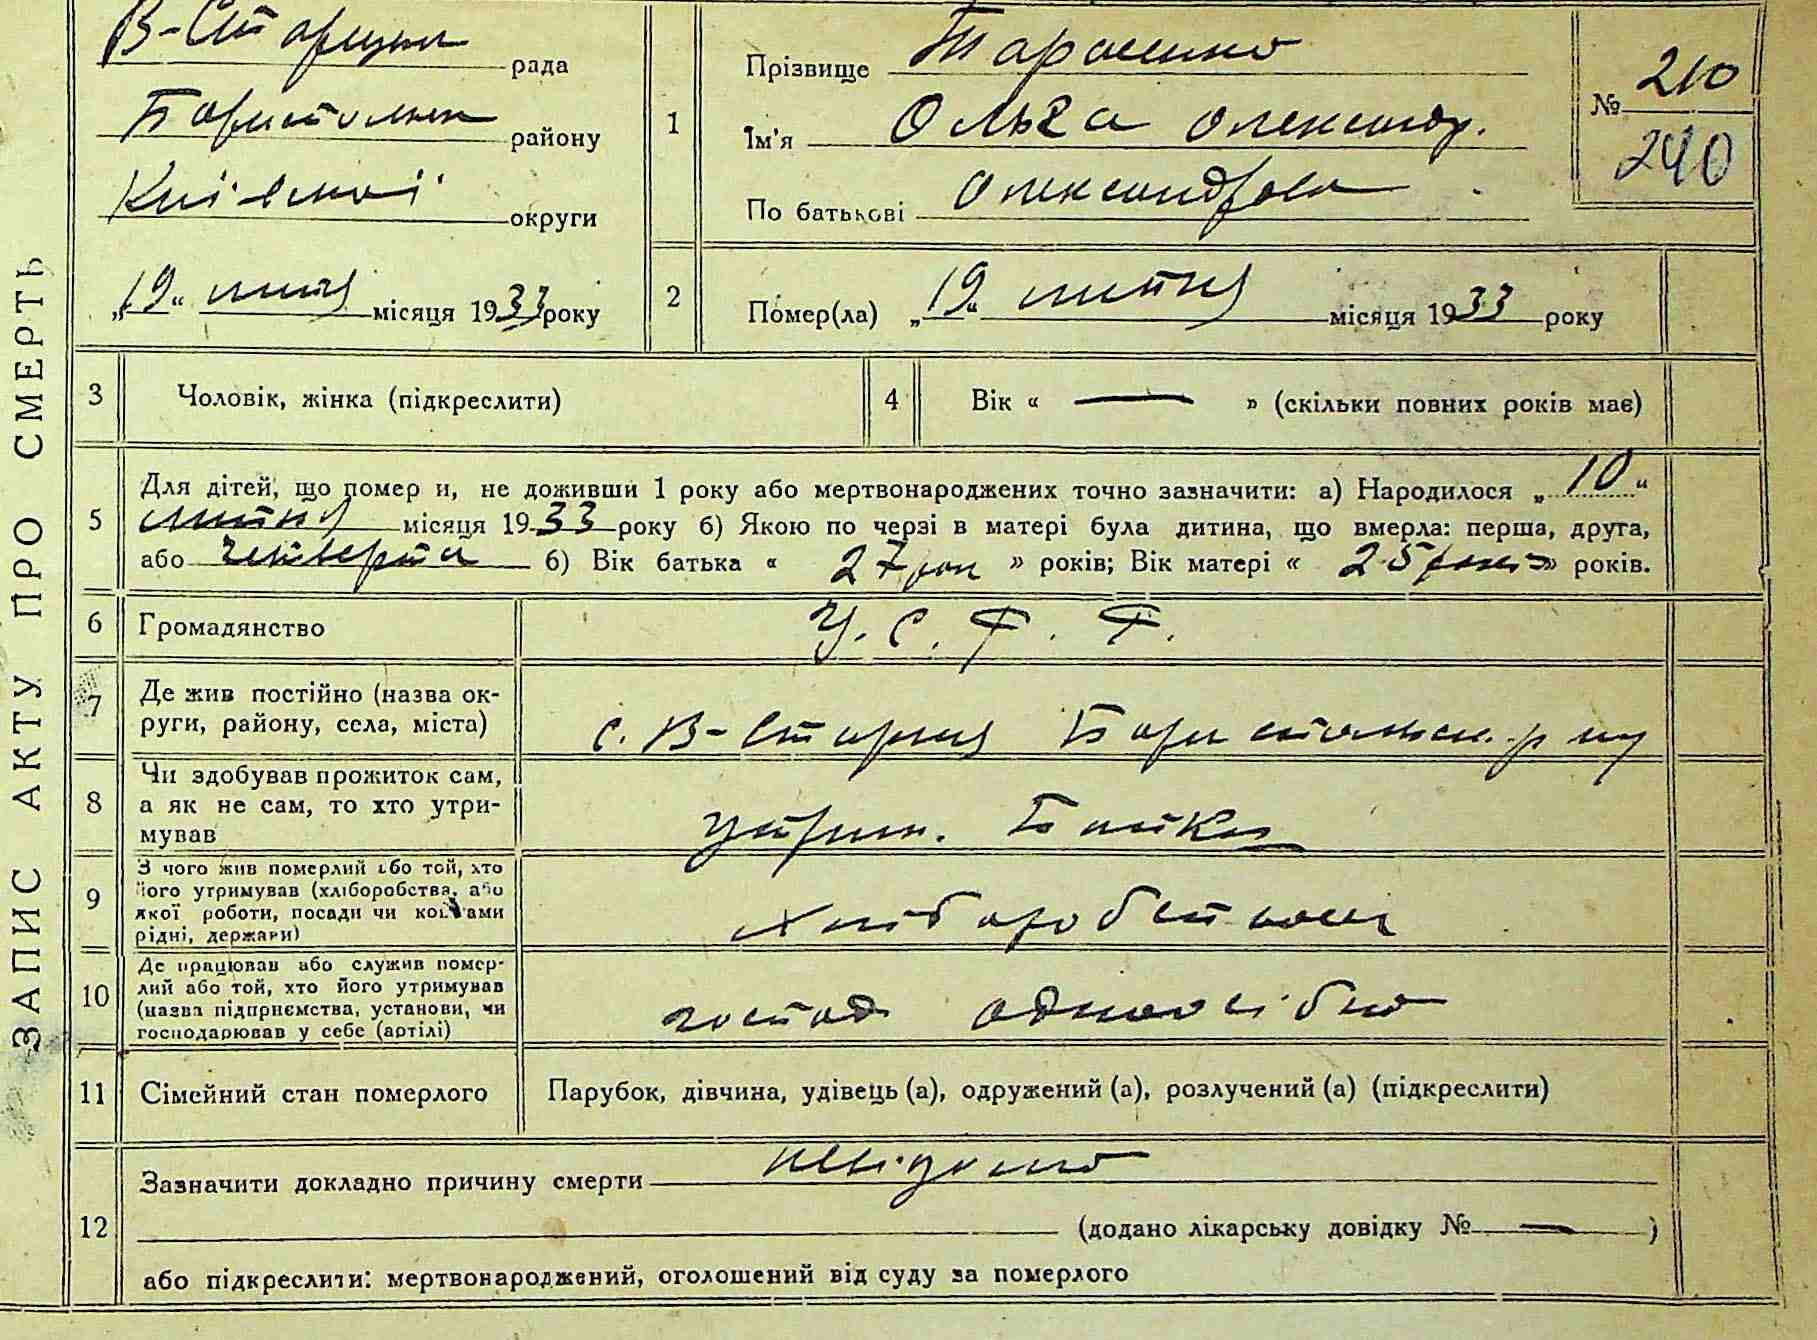 ЗАПИС АКТУ ПРО СМЕРТЬ
В-Старицька рада
Бориспільськ району
Київської округи
„19“ липня місяця 1933 року
1
Прізвище Тарасенко
Ім'я Ольга Олександр.
По батькові Олександрова
№ 210
240
2
Помер(ла) „19“ липня місяця 1933 року
3 Чоловік, жінка (підкреслити)
4 Вік « — » (скільки повних років має)
5
Для дітей, що помер и, не доживши 1 року або мертвонароджених точно зазначити: а) Народилося „10“
липня місяця 1933 року б) Якою по черзі в матері була дитина, що вмерла: перша, друга,
або четверта б) Вік батька « 27 рок » років; Вік матері « 25 років » років.
6 Громадянство У. С. Р. Р.
7 Де жив постійно (назва ок-
руги, району, села, міста)
с. В-Стариця Бориспільськ. р-ну
8 Чи здобував прожиток сам,
а як не сам, то хто утри-
мував
утрим. Батька
9 З чого жив померлий або той, хто
його утримував (хліборобства, або
якої роботи, посади чи коштами
рідні, держави)
хліборобством
10 Де працював або служив помер-
лий або той, хто його утримував
(назва підприємства, установи, чи
господарював у себе (артілі)
господ одноосібно
11 Сімейний стан померлого
Парубок, дівчина, удівець (а), одружений (а), розлучений (а) (підкреслити)
12
Зазначити докладно причину смерти невідомо
(додано лікарську довідку № — )
або підкреслити: мертвонароджений, оголошений від суду за померлого